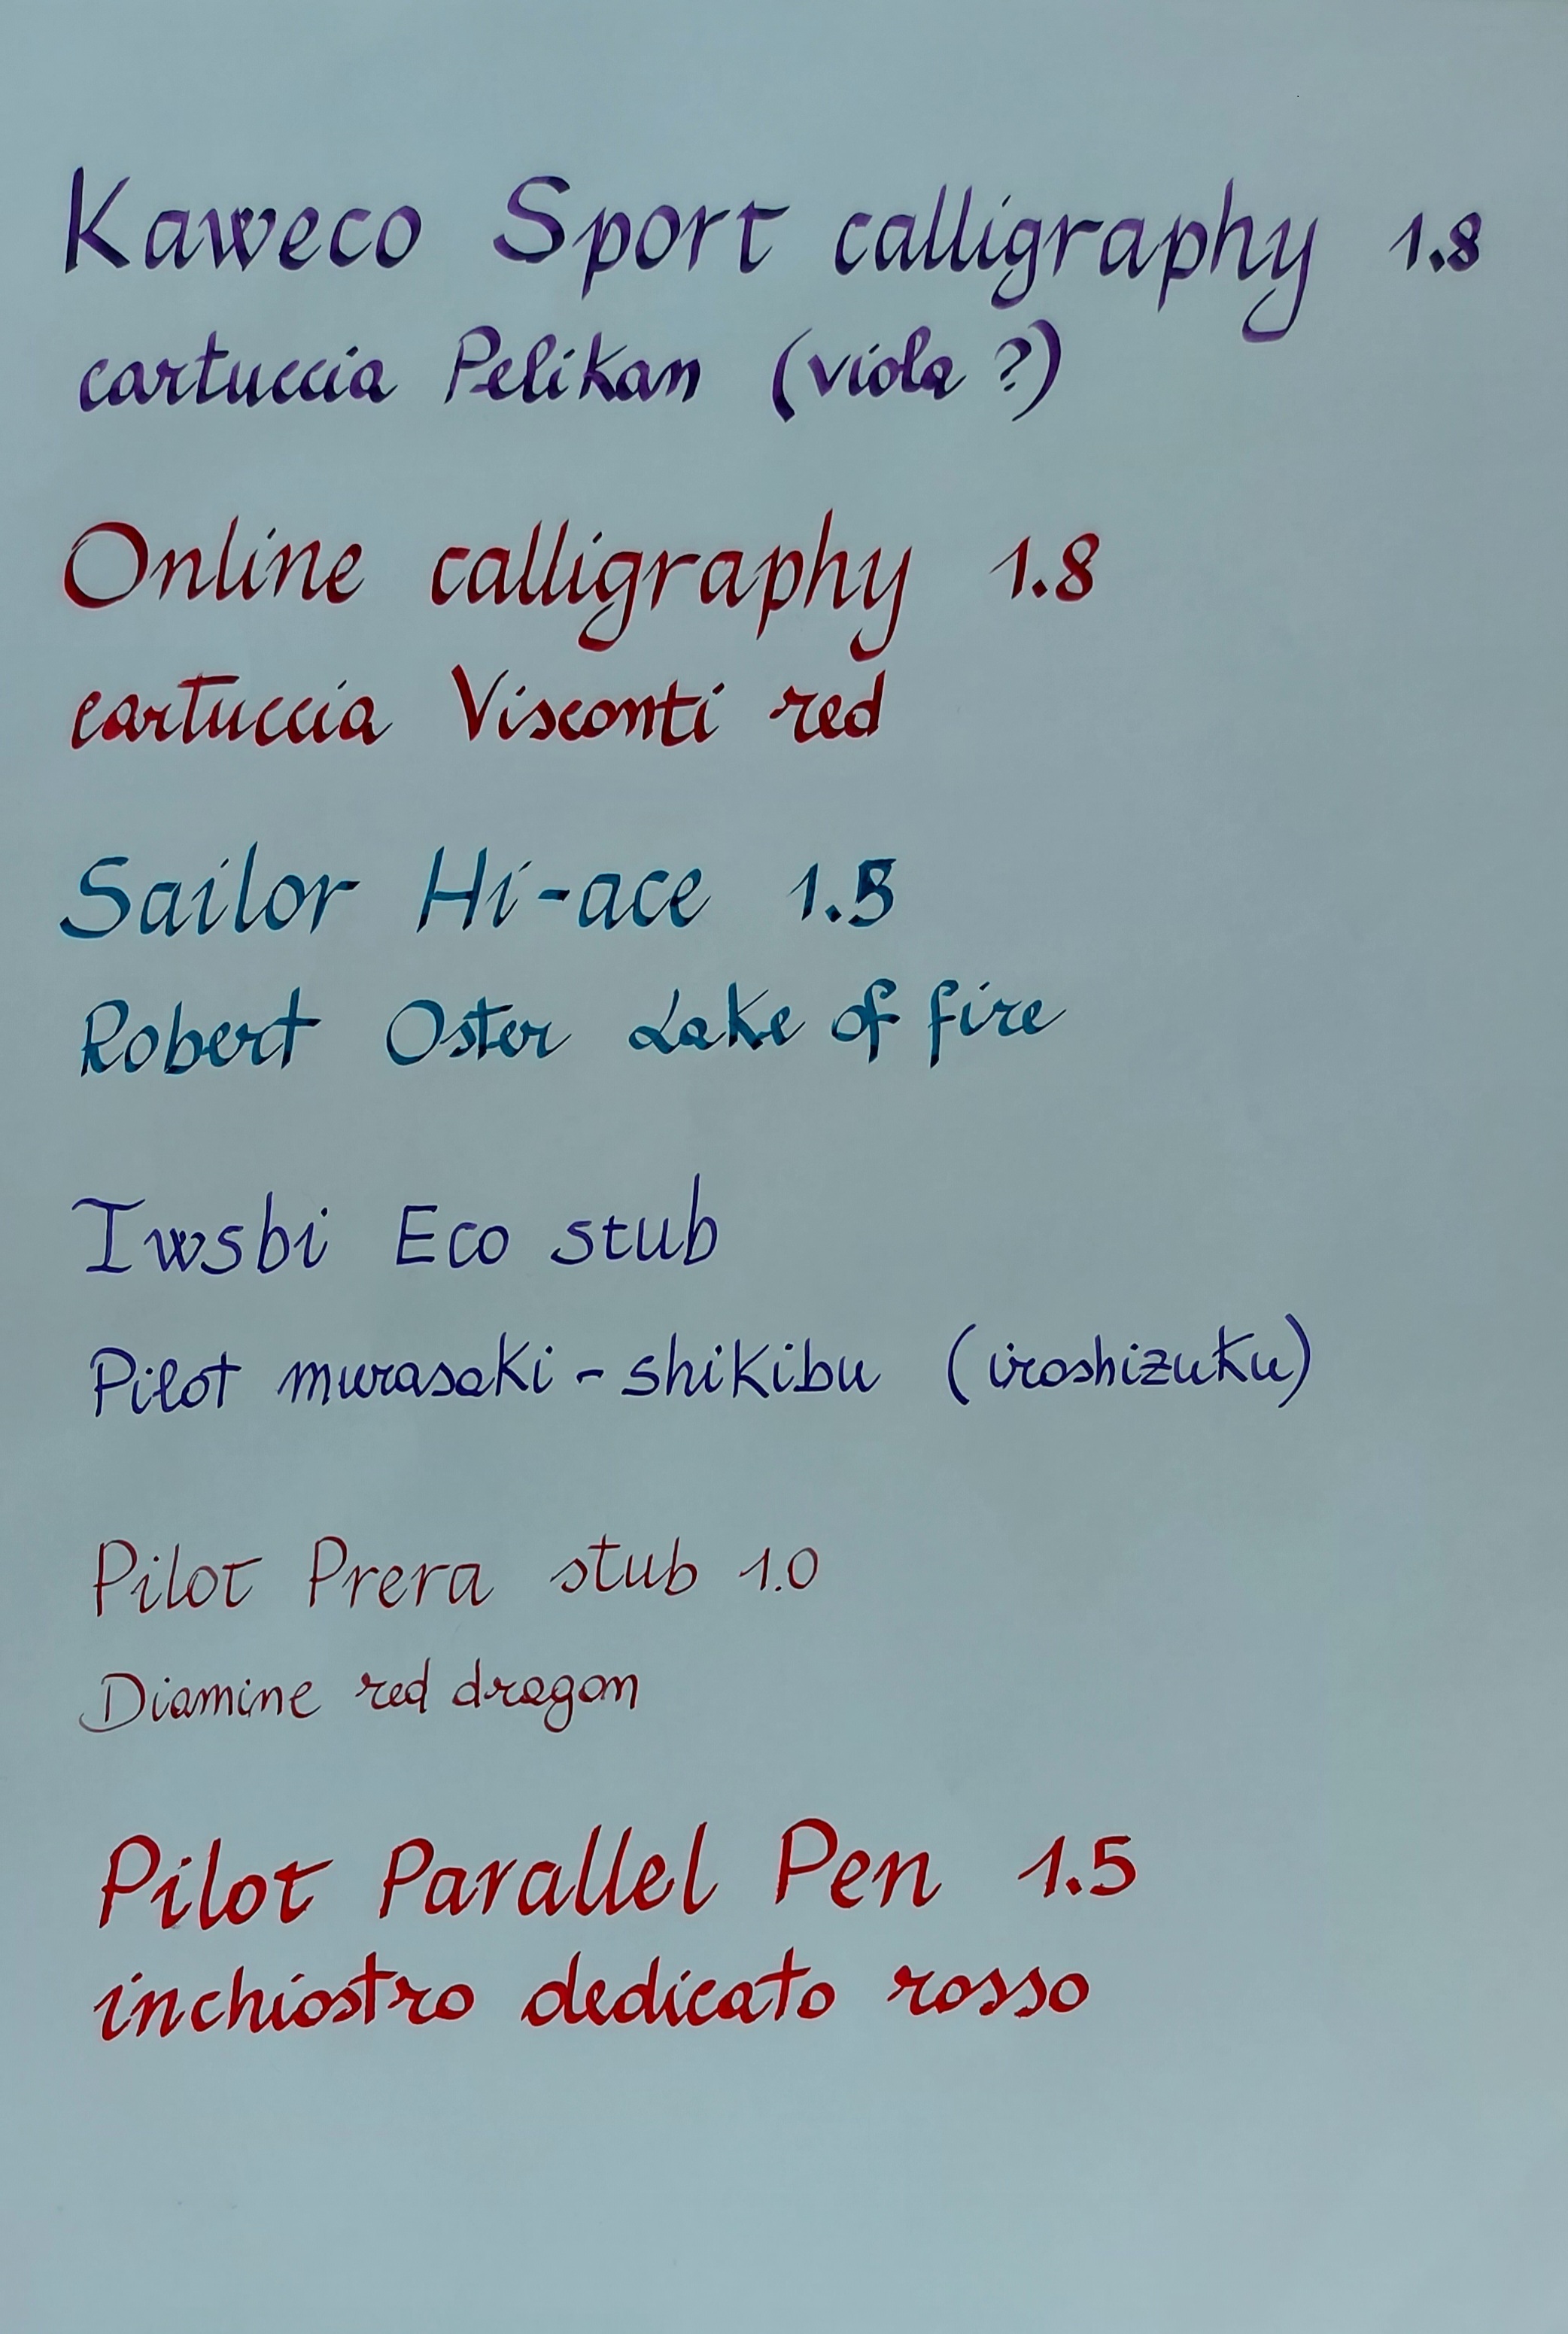 Kaweco Sport calligraphy 1.8
cartuccia Pelikan (viola ?)
Online calligraphy 1.8
cartuccia Visconti red
Sailor Hi-ace 1.5
Robert Oster Lake of fire
Twsbi Eco stub
Pilot murasaki - shikibu (iroshizuku)
Pilot Prera stub 1.0
Diamine red dragon
Pilot Parallel Pen 1.5
inchiostro dedicato rosso